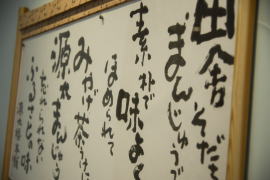 田舎そだち
まんじゅうで
素朴で味よく
ほめられて
みやげ茶うけに
源九まんじゅう
忘れられない
ふるさとの味